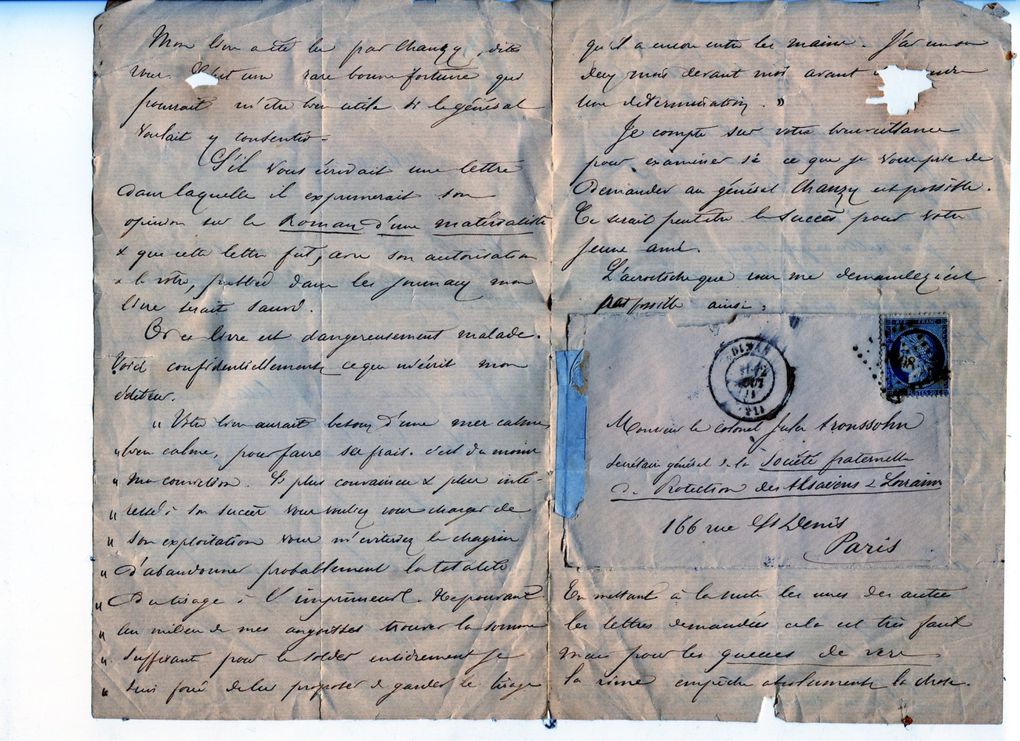 Mon livre a été lu par Chanzy, dites
vous. C'est une rare bonne fortune qui
pourrait m'être bien utile si le général
voulait y consentir.
S'il vous écrivait une lettre
dans laquelle il exprimerait son
opinion sur le Roman d'une matérialiste
& que cette lettre fut, avec son autorisation
& la vôtre, publiée dans les journaux mon
livre serait sauvé.
Or ce livre est dangereusement malade.
Voici confidentiellement ce que m'écrit mon
éditeur.
" Votre livre aurait besoin d'une mer calme
" bien calme, pour faire ses frais. c'est du moins
" ma conviction. Si plus convaincu & plus inté-
" ressé à son succès vous vouliez vous charger de
" son exploitation vous m'éviteriez le chagrin
" d'abandonner probablement la totalité
" du tirage à l'imprimeur. Ne pouvant
" au milieu de mes angoisses trouver la somme
" suffisante pour le solder entièrement je
" suis forcé de lui proposer de garder le tirage
qu'il a encore entre les mains. J'ai un ou
deux mois devant moi avant
une détermination. "
Je compte sur votre bienveillance
pour examiner si ce que je vous prie de
demander au général Chanzy est possible.
Ce serait peut être le succès pour votre
jeune ami.
L'acrostiche que vous me demandez n'est
pas possible ainsi,
DINAN
AOUT
(21)
Monsieur le colonel Jules Aronssohn
Secrétaire général de la Société fraternelle
de Protection des Alsaciens & Lorrains
166 rue St Denis
Paris
En mettant à la suite les unes des autres
les lettres demandées cela est très faut
mais pour les queues de vers
la rime empêche absolument la chose.